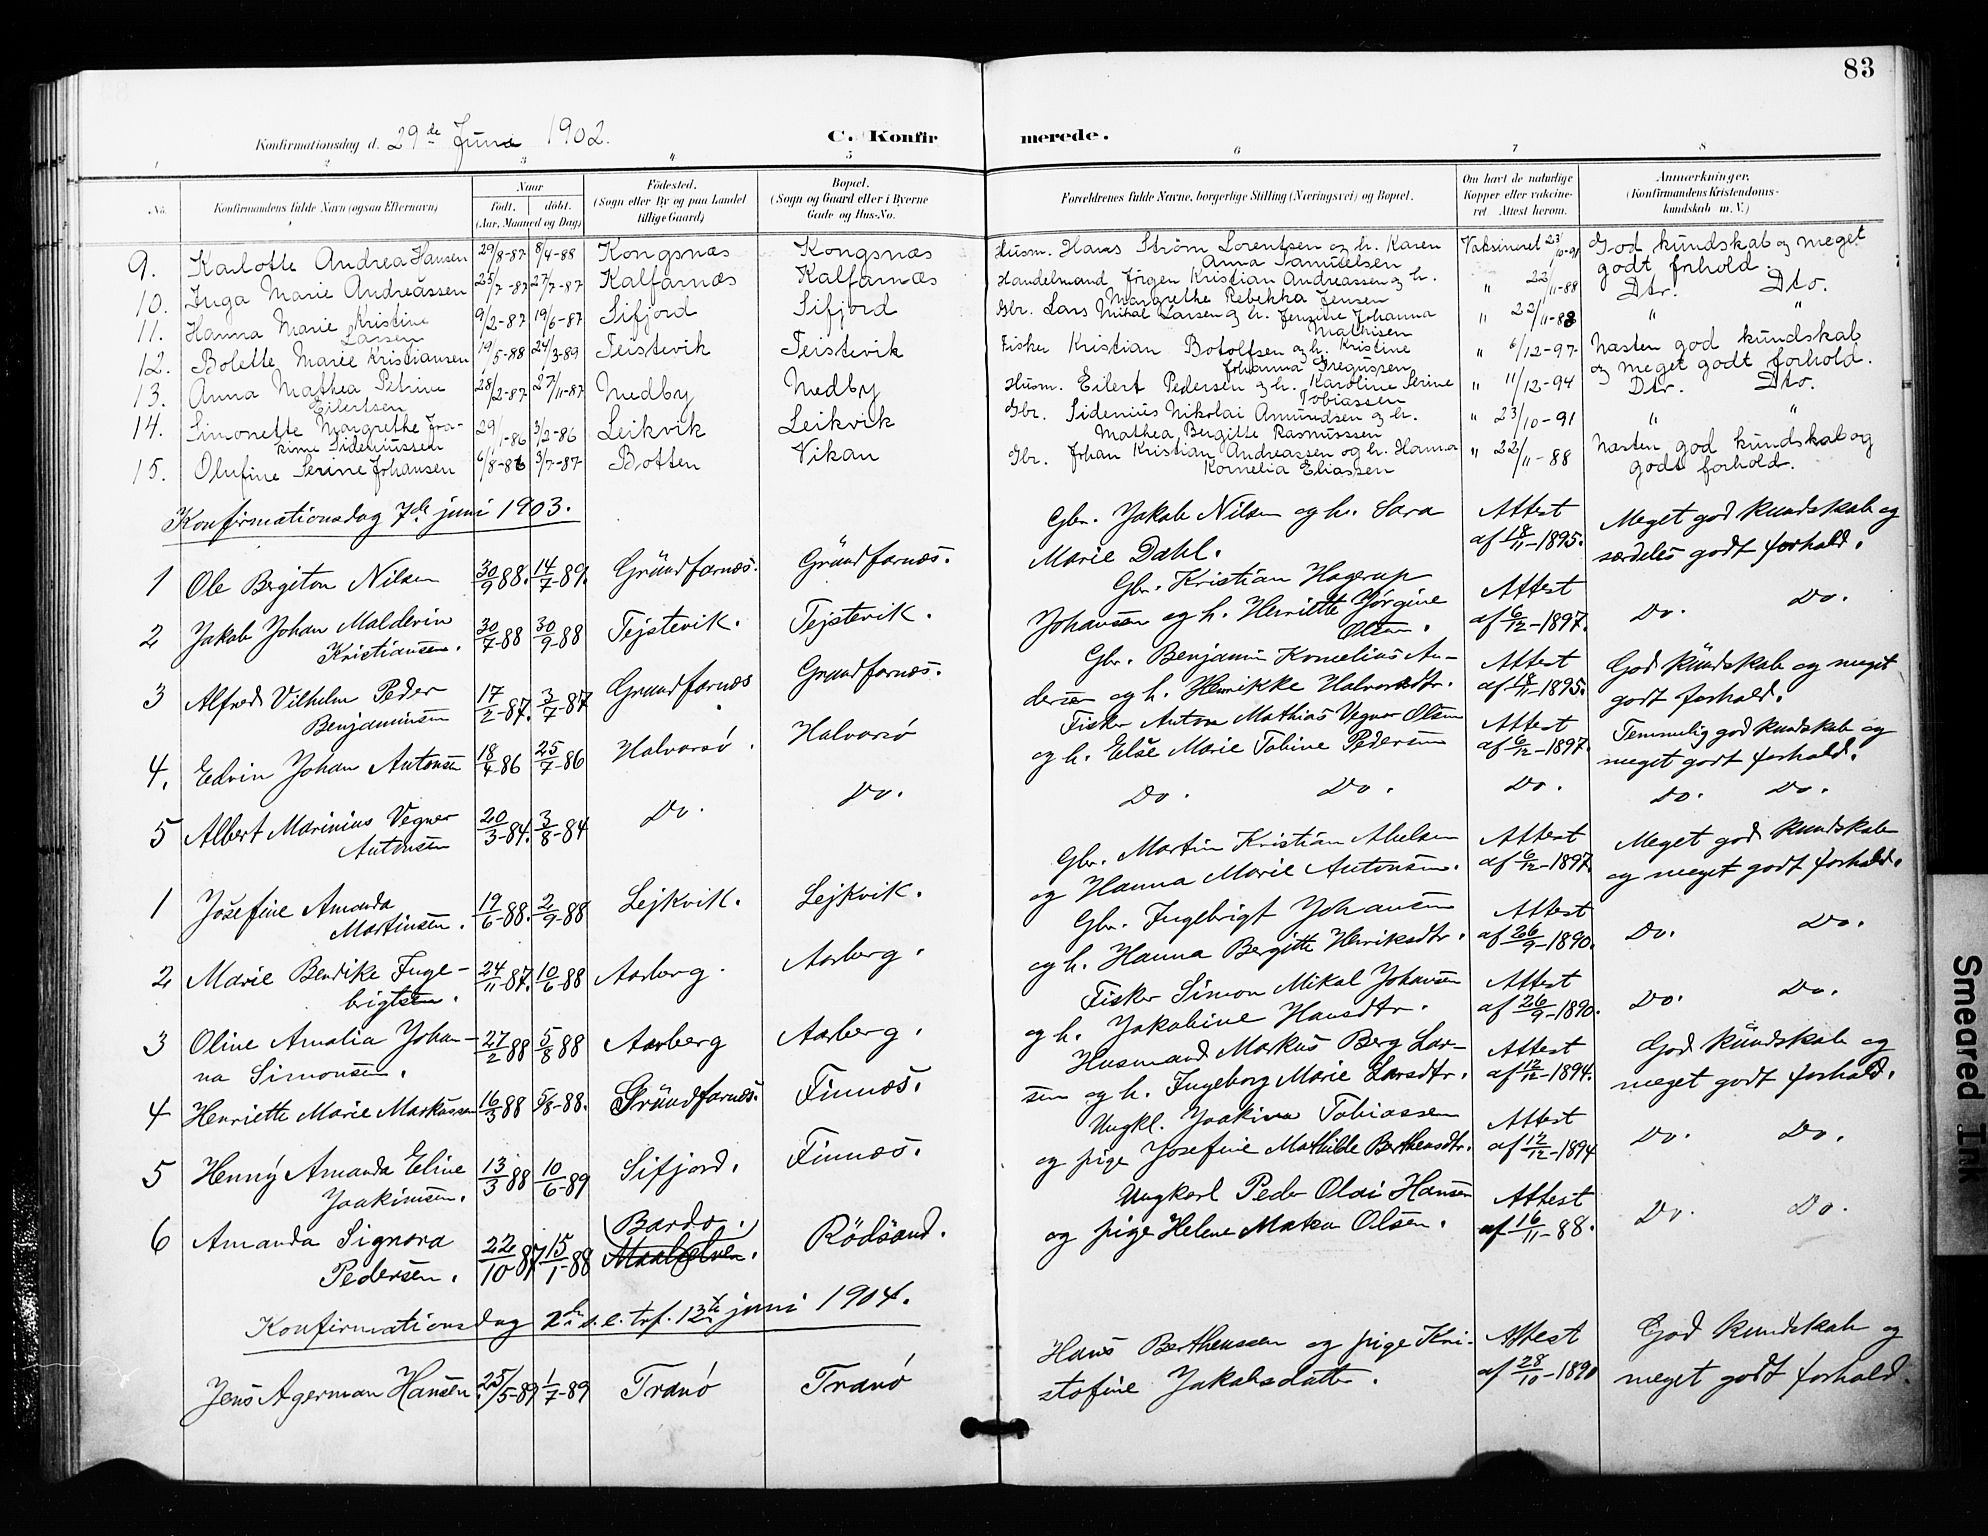 83
Konfirmationsdag d. 29de Juni 1902.
C. Konfirmerede.
1 2 3 4 5 6 7 8
No.
Konfirmandens fulde Navn (ogsaa Efternavn)
Naar
født. døbt.
(Aar, Maaned og Dag)
Fødested.
(Sogn eller By og paa Landet
tillige Gaard)
Bopæl.
(Sogn og Gaard eller i Byerne
Gade og Hus-No.
Forældrenes fulde Navne, borgerlige Stilling (Næringsvei) og Bopæl.
Om havt de naturlige
Kopper eller vakcine-
ret Attest herom.
Anmærkninger.
(Konfirmandens Kristendoms-
kundskab m. V.)
9. Karlotte Andrea Hansen 29/8-87 8/4-88 Kongsnæs Kongsnæs Husm. Hans Strøm Lorentsen og h. Karen Vaksineret 23/10-91 God kundskab og meget
Anna Samuelsen godt forhold.
10. Inga Marie Andreassen 25/7-87 27/7-87 Kalfarnæs Kalfarnæs Handelsmand Jørgen Kristian Andreassen og h. " 22/11-88 Dtr. Dto.
Margrethe Rebekka Jensen
11. Hanna Marie Kristine 9/2-87 19/6-87 Sifjord Sifjord Gbr. Lars Mihal Larsen og h. Jensine Johanna " 22/11-88 " "
Larsen Mathisen
12. Bolette Marie Kristiansen 19/5-88 24/3-89 Teistevik Teistevik Fisker Kristian Botolfsen og h. Kristine " 6/12-97 Næsten god kundskab
Johanna Gregussen og meget godt forhold.
13. Anna Mathea Petrine 28/2-87 27/11-87 Nedby Nedby Husm. Eilert Pedersen og h. Karoline Serine " 11/12-94 Dtr. Dto.
Eilertsen Tobiassen
14. Simonette Margrethe Joa- 29/1-86 3/2-86 Leikvik Leikvik Gbr. Sidenius Nikolai Amundsen og h. " 23/10-91 " "
kime Sideniussen Mathea Bergitte Rasmussen
15. Olufine Serine Johansen 6/8-86 3/7-87 Botten Vikan Gbr. Johan Kristian Andreassen og h. Hanna " 22/11-88 Næsten god kundskab og
Kornelia Eliassen godt forhold.
Konfirmationsdag 7de juni 1903.
1 Ole Bergiton Nilsen 30/9 88. 14/7-89. Gründfarnæs. Gründfarnæs. Gbr. Jakob Nilsen og h. Sara Attest Meget god kundskab og
Marie Dahl. af 18/11-1895. særdeles godt forhold.
2 Jakob Johan Malderin 30/7-88 30/9-88 Tejstevik. Tejstevik. Gbr. Kristian Hagerup Attest Do. Do.
Kristiansen. Johansen og h. Henriette Jørgine af 6/12-1897.
Olsen.
3 Alfred Vilhelm Peder 17/2-87. 3/7-87 Grundfarnæs Grundfarnæs. Gbr. Benjamin Kornelius An- Attest God kundskab og meget
Benjaminsen dersen og h. Henrikke Halvorsdtr. af 18/11-1895. godt forhold.
4. Edvin Johan Antonsen 18/4-86 25/7-86 Halvorsø. Halvorsø Fisker Anton Mathias Vegner Olsen Attest Temmelig god kundskab og
og h. Else Marie Tobine Pedersen af 6/12-1897. meget godt forhold.
5 Albert Marinius Vegner 20/3-84. 3/8-84 Do. Do. Do. Do. Do. Do. Do.
Antonsen
1 Josefine Amanda 19/6-88. 2/9-88 Lejkvik. Lejkvik. Gbr. Martin Kristian Abelsen Attest Meget god kundskab
Martinsen. og Hanna Marie Antonsen. af 6/12-1897. og meget godt forhold.
2 Marie Bendike Inge- 24/11-87. 10/6-88 Aarberg. Aarberg. Gbr. Ingebrigt Johansen Attest Do. Do.
brigtsen. og h. Hanna Bergitte Henriksdtr. af 26/9-1890.
3 Oline Amalia Johan- 27/2 88 5/8 88 Aarberg Aarberg. Fisker Simon Mikal Johansen Attest Do. Do.
na Simonsen. og h. Jakobine Hansdtr. af 26/9-1890.
4 Henriette Marie Markussen 16/3 88 5/8-88. Gründfarnæs. Finnæs. Husmand Markus Berg Lar- Attest God kundskab og
sen og h. Ingeborg Marie Larsdtr. af 12/12-1894. meget godt forhold.
5 Henny Amanda Eline 13/3 88 10/6-89 Sifjord. Finnæs. Ungkl. Joakim Tobiassen Attest Do. Do.
Joakimsen. og pige Josefine Mathilde Berthensdtr. af 12/12-1894
6 Amanda Signora 22/10 87 15/1-88 (Bardo.) Rödsand. Ungkarl Peder Olai Hansen Attest Do. Do.
Pedersen. Maalselven. og pige Helene Olsen. af 16/11-88.
Konfirmationsdag 2den s. e. trf. 12te juni 1904.
Jens Agerman Hansen 25/5-89 1/7-89 Tranö Tranö Hans Berthenssen og pige Kri- Attest God kundskab og
stofine Jakobsdatter. af 28/10-1890 meget godt forhold.
Smeared Ink